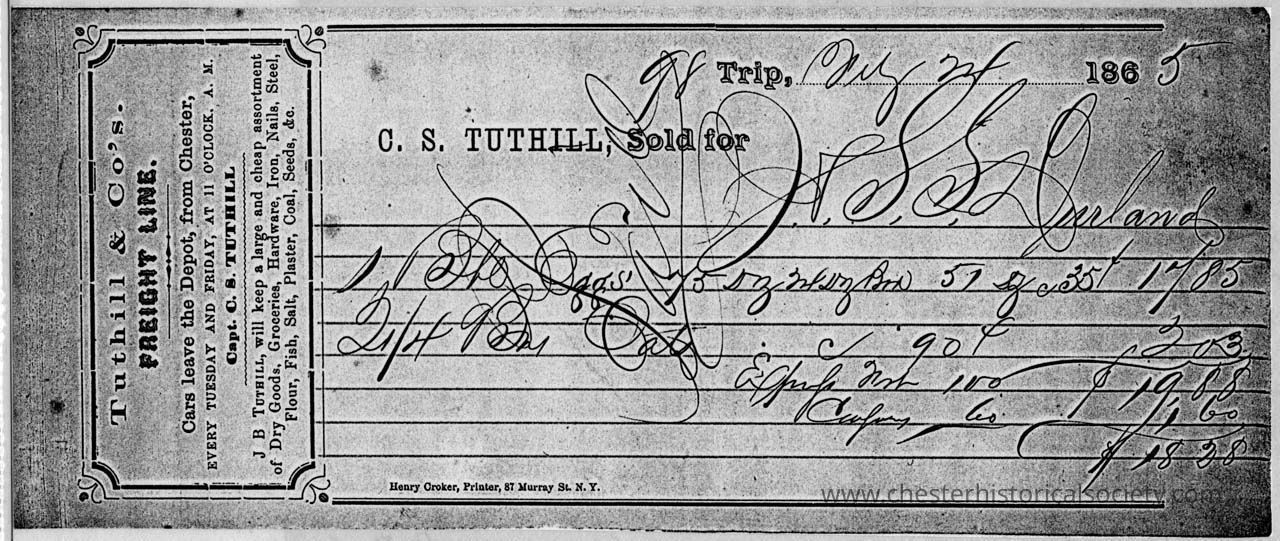 Tuthill & Co's.
FREIGHT LINE.
Cars leave the Depot, from Chester,
EVERY TUESDAY AND FRIDAY, AT 11 O'CLOCK, A. M.
Capt. C. S. TUTHILL
J B TUTHILL, will keep a large and cheap assortment
of Dry Goods, Groceries, Hardware, Iron, Nails, Steel,
Flour, Fish, Salt, Plaster, Coal, Seeds, &c.
98 Trip, 1865
C. S. TUTHILL, Sold for
N. S. S. Durland
1 Bbl Eggs 75 Dz 51 35¢ 17/85
2 1/4 90¢ 2 03
100 $19 88
60 1 60
$18 28
Henry Croker, Printer, 87 Murray St. N. Y.
www.chesterhistoricalsociety.com